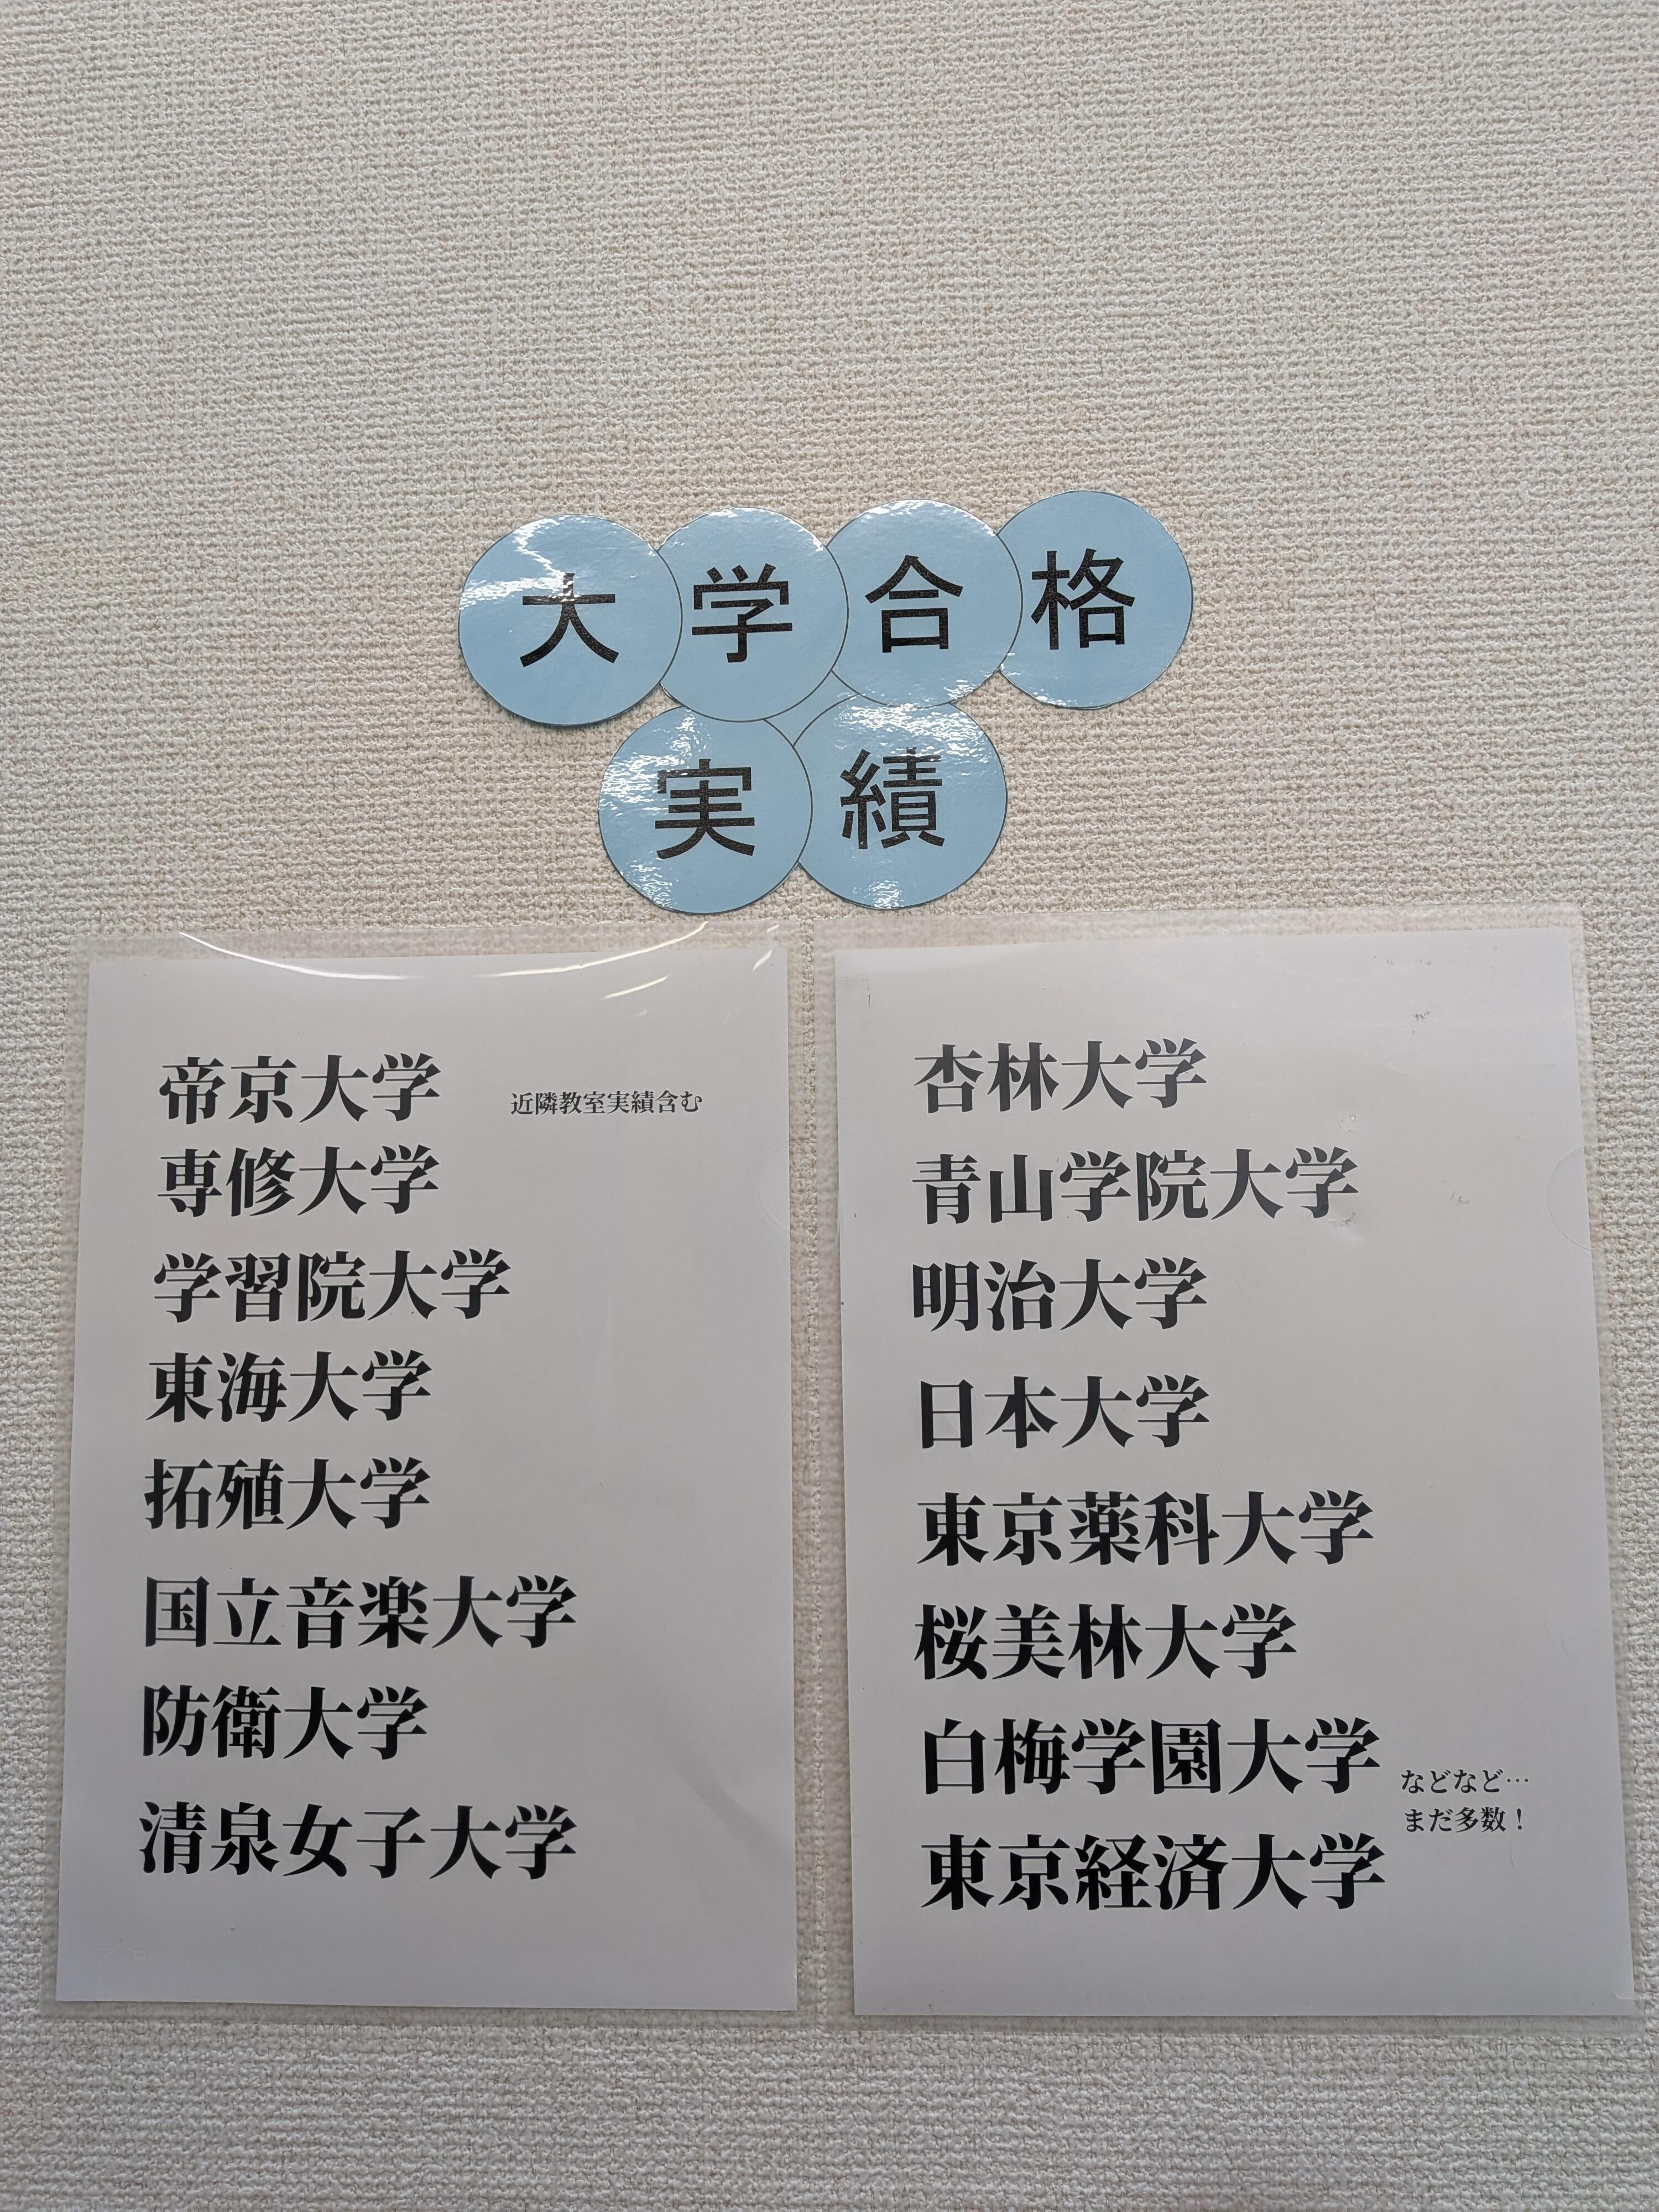 大学合格
実績
帝京大学
近隣教室実績含む
専修大学
学習院大学
東海大学
拓殖大学
国立音楽大学
防衛大学
清泉女子大学
杏林大学
青山学院大学
明治大学
日本大学
東京薬科大学
桜美林大学
白梅学園大学
などなど…
まだ多数！
東京経済大学